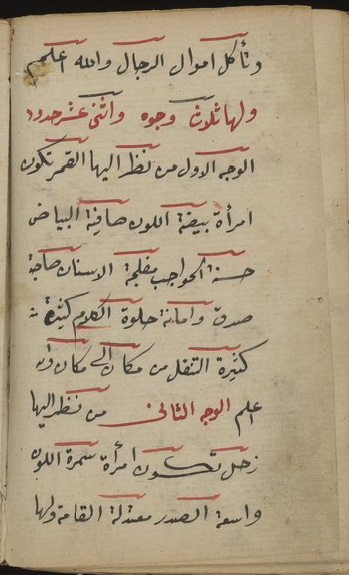 وتأكل اموال الرجال والله اعلم
ولها ثلاث وجوه واثنى عشر حدود
الوجه الاول من نظر اليها القمر تكون
امرأة بيضة اللون صافية البياض
حسنة الحواجب مفلجة الاسنان صاحبة
صدق وامانة حلوة الكلام كثيرة
كثيرة التنقل من مكان الى مكان والله
اعلم الوجه الثانى من نظر اليها
زحل تكون امرأة سمرة اللون
واسعة الصدر معتدلة القامة ولها